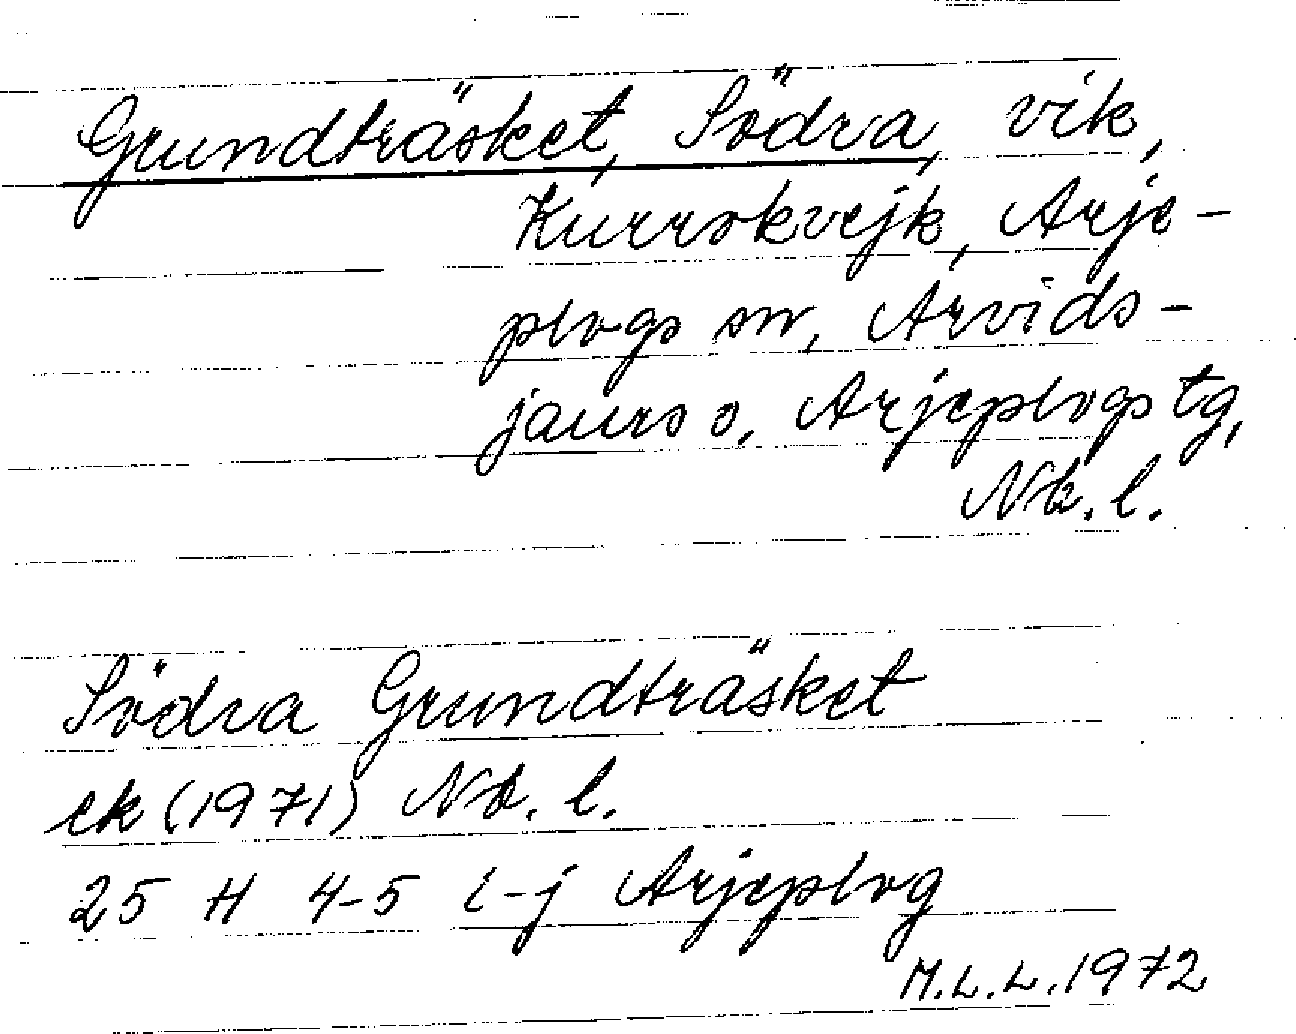 Grundträsket, Södra, vik,
Kurrokvejk, Arje-
plogs sn, Arvids-
jaurs o. Arjeplogs tg,
Nb. l.
Södra Grundträsket
ek (1971) Nb. l.
25 H 4-5 i-j Arjeplog
M.L.L. 1972